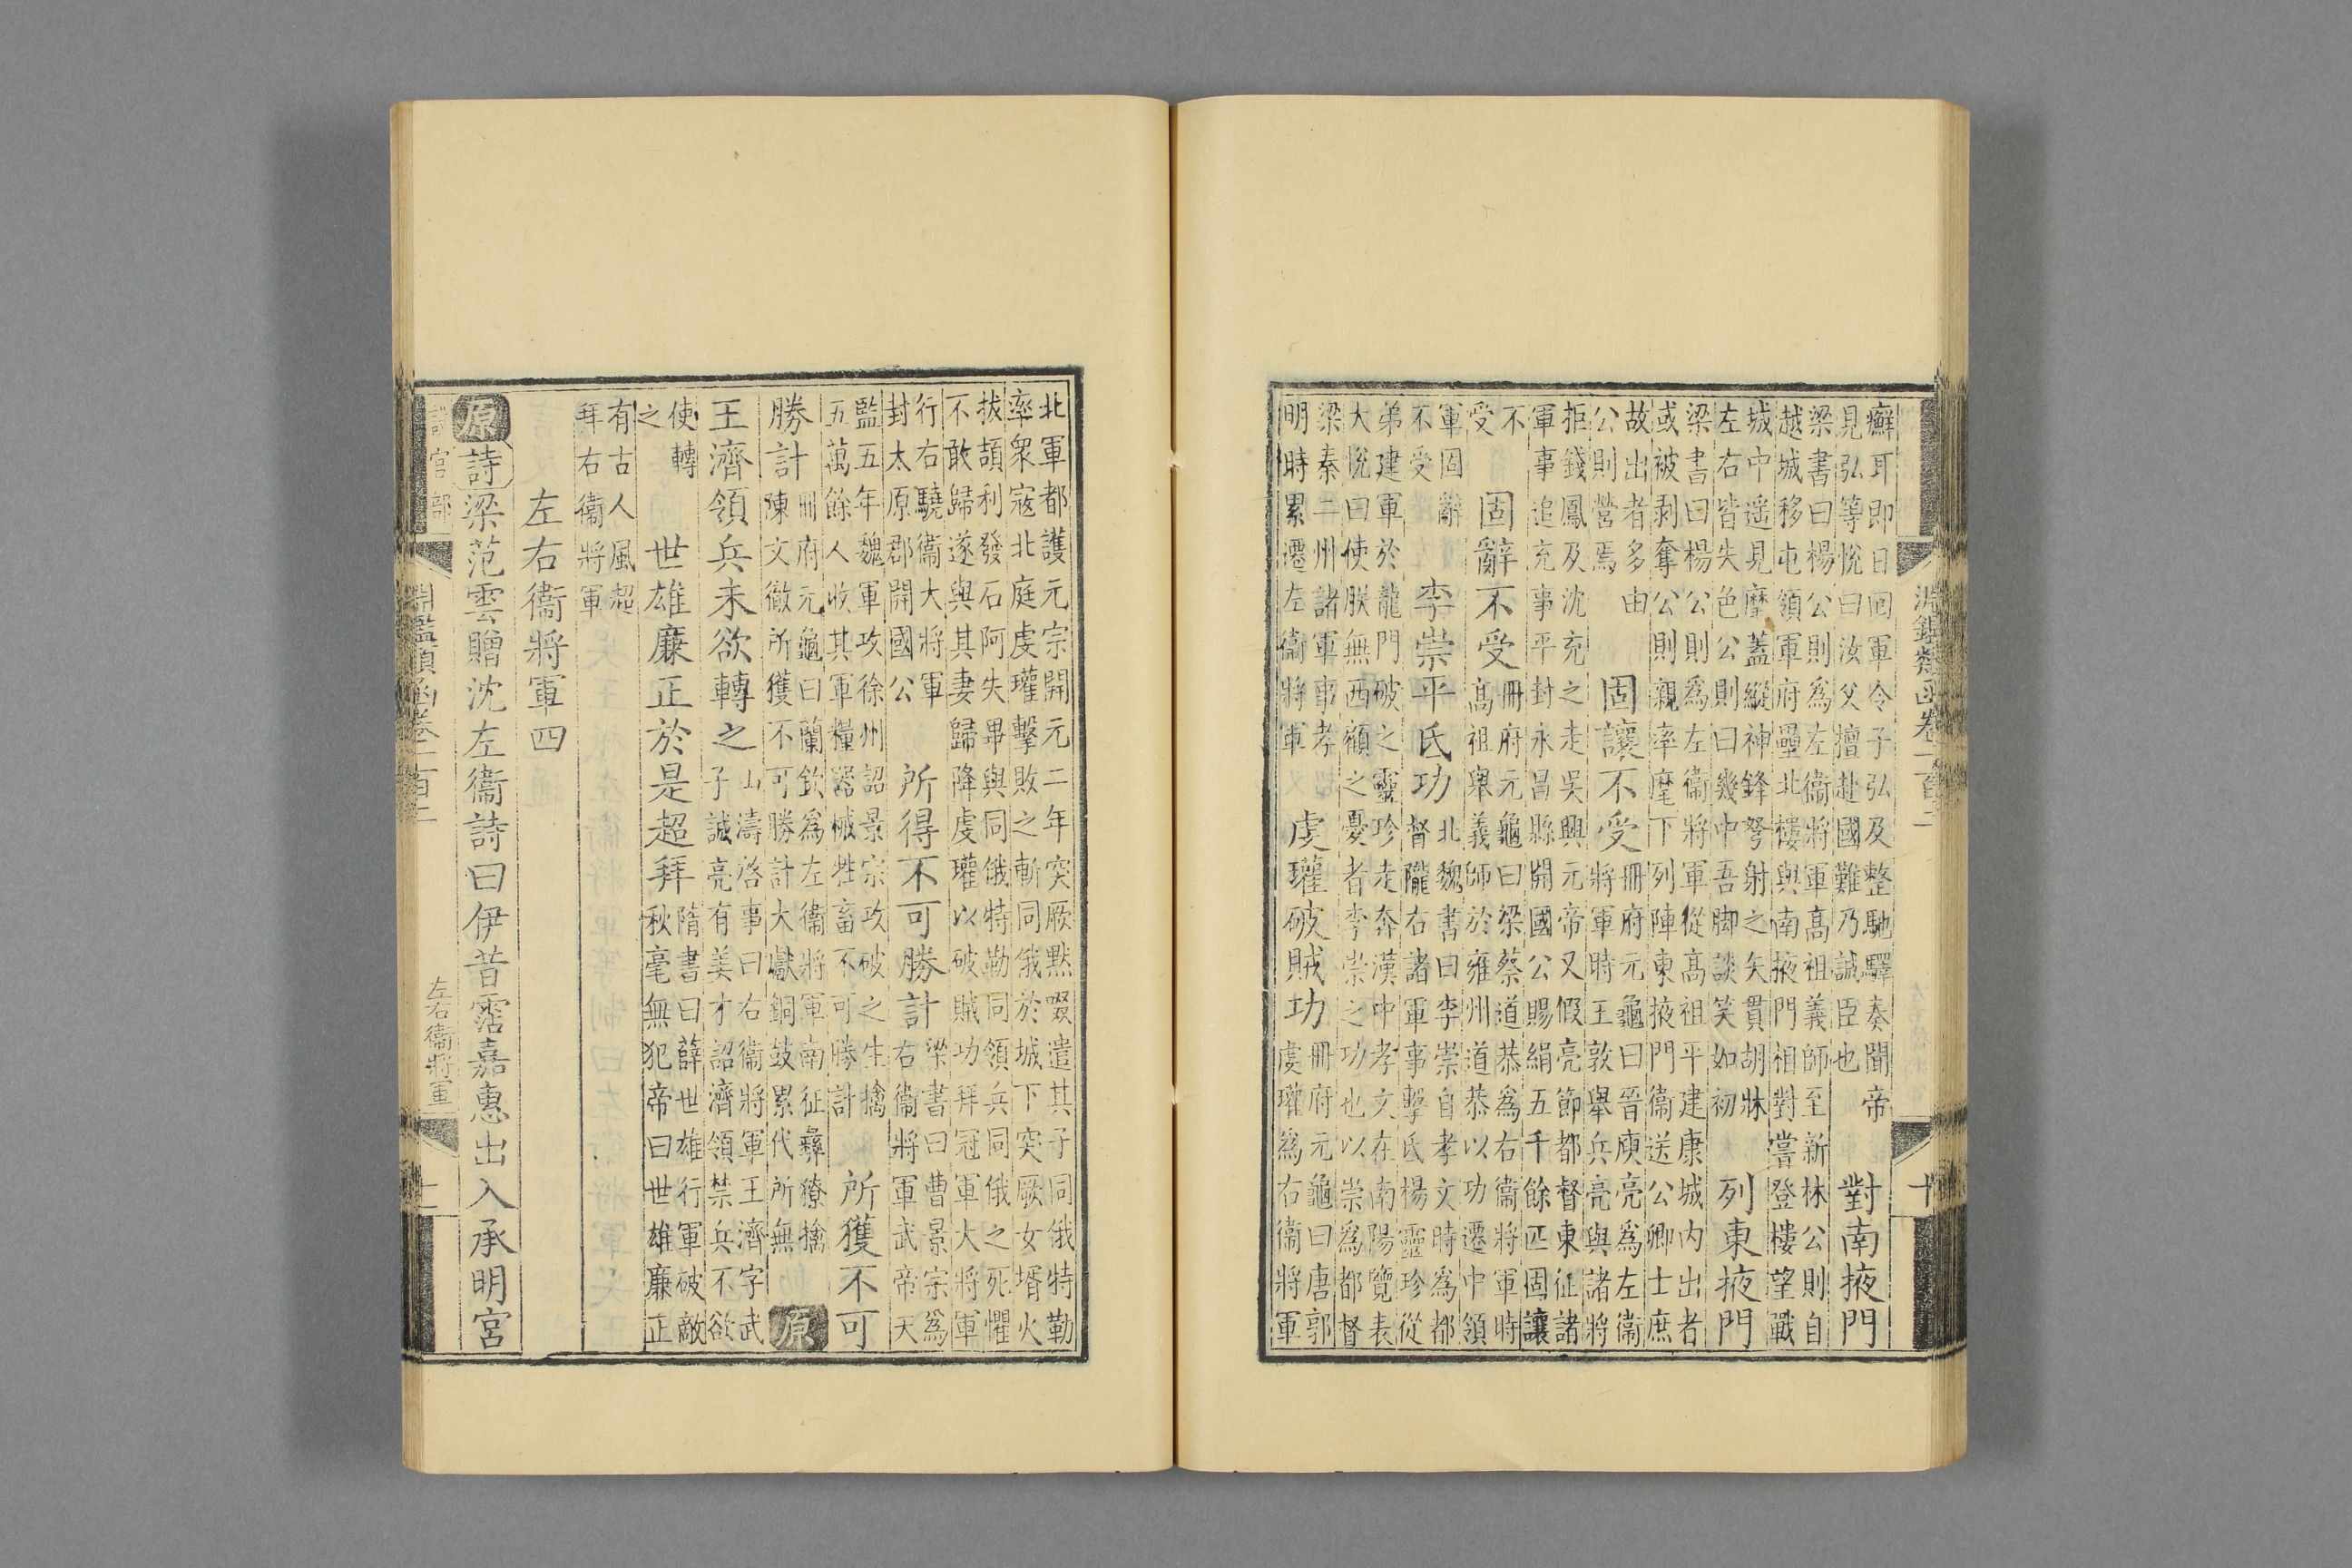 淵鑑類函卷一百二
十
癬耳即日囘軍令子弘及整馳驛奏聞帝
見弘等悅曰汝父擅赴國難乃誠臣也
對南掖門
梁書曰楊公則爲左衞將軍髙祖義師至新林公則自
越城移屯領軍府壘北樓與南掖門相對嘗登樓望戰
城中遥見麾蓋縱神鋒弩射之矢貫胡牀
左右皆失色公則曰幾中吾脚談笑如初
列東掖門
梁書曰楊公則爲左衞將軍從髙祖平建康城内出者
或被剥奪公則親率麾下列陣東掖門衞送公卿士庶
故出者多由
公則營焉
固讓不受
冊府元龜曰晉庾亮爲左衞
將軍時王敦舉兵亮與諸將
拒錢鳳及沈充之走吳興元帝又假亮節都督東征諸
軍事追充事平封永昌縣開國公賜絹五千餘匹固讓
不
受
固辭不受
冊府元龜曰梁蔡道恭爲右衞將軍時
髙祖舉義師於雍州道恭以功遷中領
軍固辭
不受
李崇平氐功
北魏書曰李崇自孝文時爲都
督隴右諸軍事擊氐楊靈珍從
弟建軍於龍門破之靈珍走奔漢中孝文在南陽覽表
大悅曰使朕無西顧之憂者李崇之功也以崇爲都督
梁秦二州諸軍事孝
明時累遷左衞將軍
虔瓘破賊功
冊府元龜曰唐郭
虔瓘爲右衞將軍
北軍都護元宗開元二年突厥黙啜遣其子同俄特勒
率衆寇北庭虔瓘擊敗之斬同俄於城下突厥女壻火
拔頡利發石阿失畢與同俄特勒同領兵同俄之死懼
不敢歸遂與其妻歸降虔瓘以破賊功拜冠軍大將軍
行右驍衞大將軍
封太原郡開國公
所得不可勝計
梁書曰曹景宗爲
右衞將軍武帝天
監五年魏軍攻徐州詔景宗攻破之生擒
五萬餘人收其軍糧器械牲畜不可勝計
所獲不可
勝計
冊府元龜曰蘭欽爲左衞將軍南征彝獠擒
陳文徹所獲不可勝計大獻銅鼓累代所無
原
王濟領兵未欲轉之
山濤啓事曰右衞將軍王濟字武
子誠亮有美才詔濟領禁兵不欲
使轉
之
世雄廉正於是超拜
隋書曰薛世雄行軍破敵
秋毫無犯帝曰世雄廉正
有古人風超
拜右衞將軍
左右衞將軍四
原
詩
梁范雲贈沈左衞詩曰伊昔霑嘉惠出入承明宮
設官部
淵鑑類函卷一百二
左右衞將軍